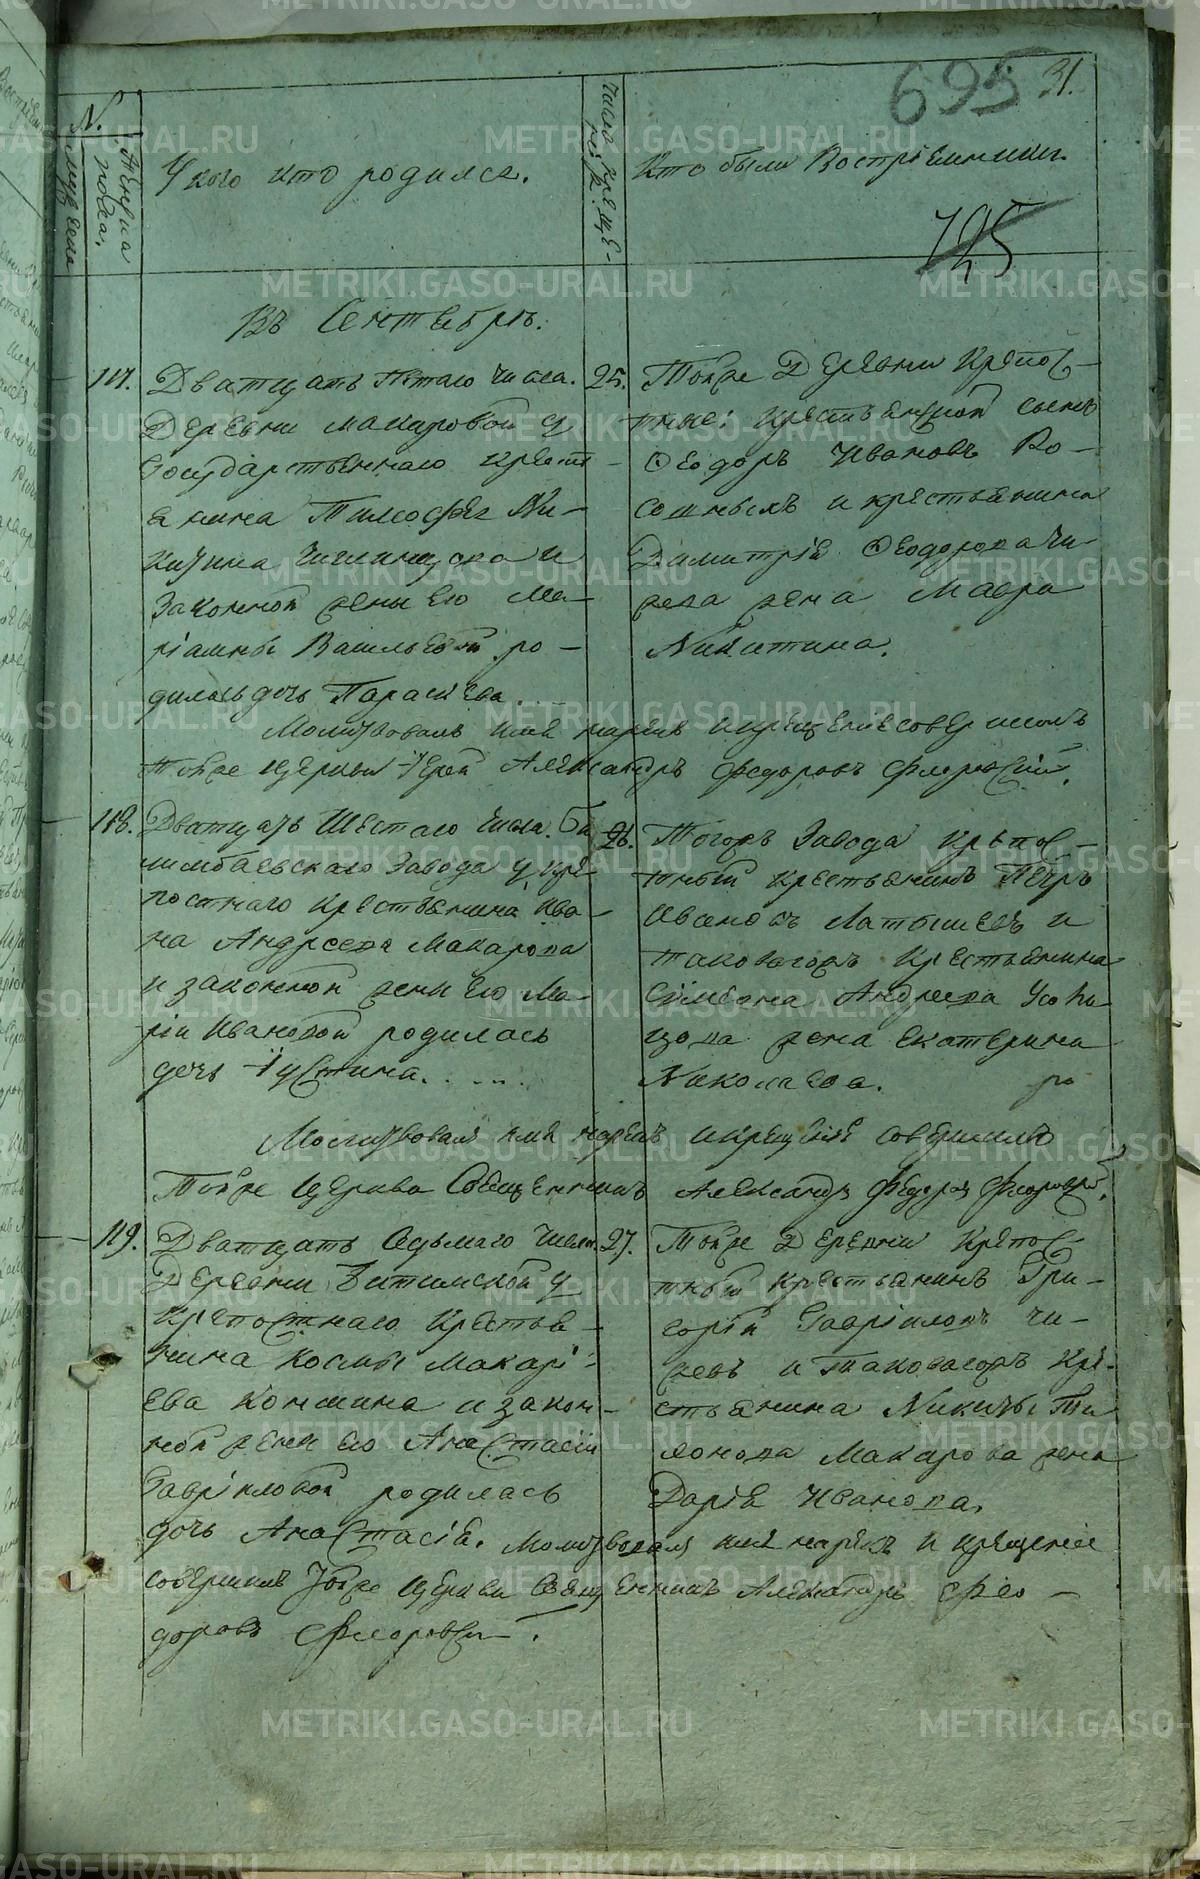 695 31.
N.
Муржеска
Женска пола.
У кого кто родился.
Число креще-
Кто были Воспріемники.
725
Въ Сентябрѣ.
117. Дватцать Пятаго числа. 25.
Деревни Макаровой у
Государственнаго крестя-
янина Тимофея Ни-
китина и
Законной жены его Ма-
ріамны Васильевой ро-
дилась дочь Параскева...
Тойже Деревни Крѣпос-
тные: крестьянской сынъ
Ѳеодоръ Ивановъ
и крестьянина
Димитрія Ѳеодорова Чи-
жева жена Мавра
Никитина.
Молитвовалъ имя нарекъ и крещеніе совершилъ
Тойже церкви Іерей Александръ Федоровъ Флоровскій.
118. Дватцать Шестаго числа. Би- 26.
лимбаевскаго Завода у крѣ-
постнаго крестьянина Ива-
на Андреева Макарова
и законной жены его Ма-
ріи Ивановой родилась
дочь Іустина. . . . .
Тогожъ Завода крѣпос-
тный крестьянинъ Петръ
Ивановъ Латышевъ и
таковагожъ крестьянина
Симеона Андреева
жена Екатерина
Николаева.
Молитвовалъ имя нарекъ и крещеніе совершилъ
Тойже церкви Священникъ Александръ Федоровъ Флоровскій.
119. Дватцать Седьмаго числа. 27.
Деревни Битимской у
крѣпостнаго крестья-
нина Космы Макарі-
ева Коншина и закон-
ной жены его Анастасіи
Гавріиловой родилась
дочь Анастасія. Молитвовалъ имя нарекъ и крещеніе
Тойже Деревни крѣпос-
тной крестьянинъ Гри-
горій Гавріиловъ Чи-
жевъ и таковагожъ кре-
стьянина Никиты Ти-
хонова Макарова жена
Дарія Иванова.
совершилъ Тойже церкви Священникъ Александръ Фео-
доровъ Флоровскій.
METRIKI.GASO-URAL.RU